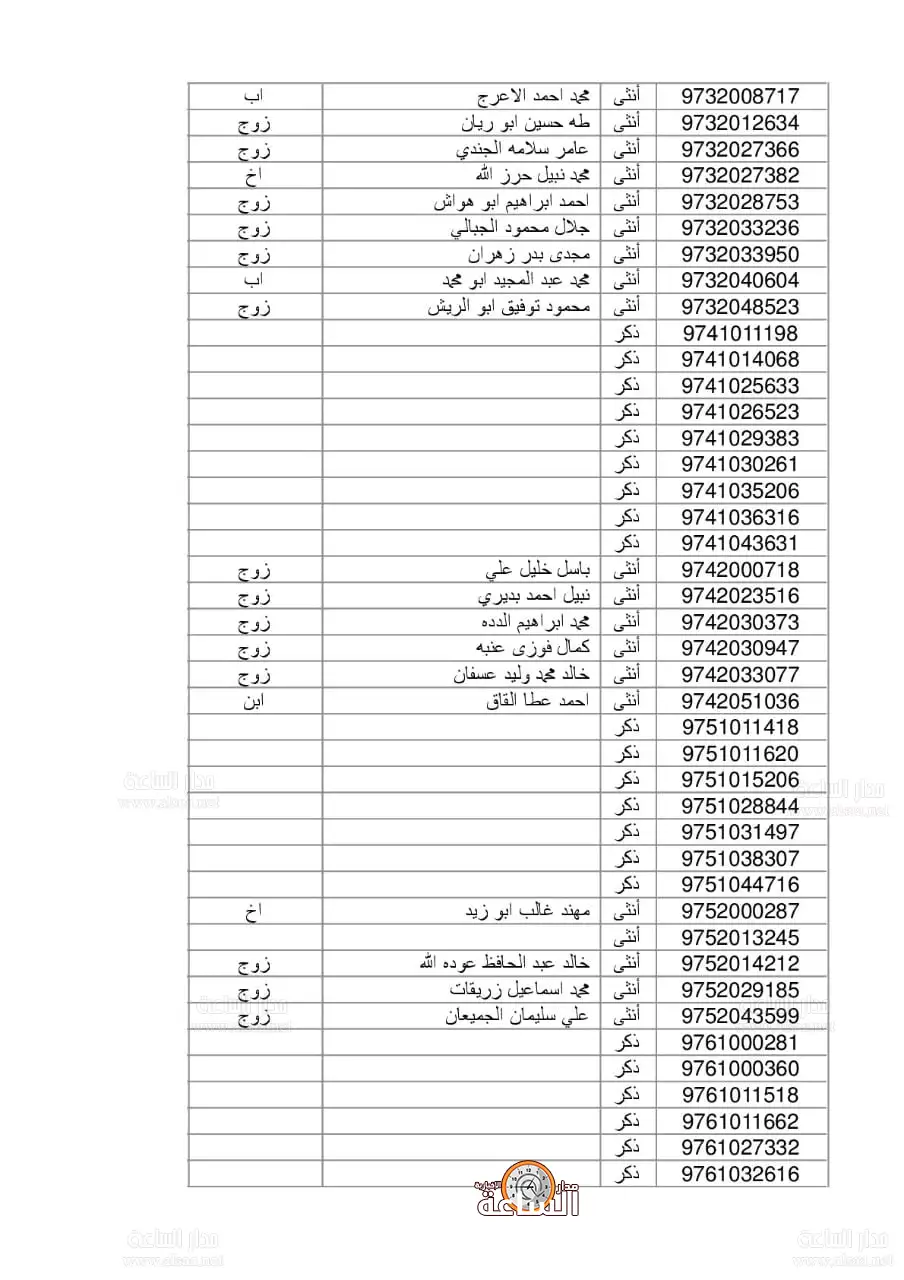 9732008717 أنثى محمد احمد الاعرج اب
9732012634 أنثى طه حسين ابو ريان زوج
9732027366 أنثى عامر سلامه الجندي زوج
9732027382 أنثى محمد نبيل حرز الله اخ
9732028753 أنثى احمد ابراهيم ابو هواش زوج
9732033236 أنثى جلال محمود الجبالي زوج
9732033950 أنثى مجدى بدر زهران زوج
9732040604 أنثى محمد عبد المجيد ابو محمد اب
9732048523 أنثى محمود توفيق ابو الريش زوج
9741011198 ذكر
9741014068 ذكر
9741025633 ذكر
9741026523 ذكر
9741029383 ذكر
9741030261 ذكر
9741035206 ذكر
9741036316 ذكر
9741043631 ذكر
9742000718 أنثى باسل خليل علي زوج
9742023516 أنثى نبيل احمد بديري زوج
9742030373 أنثى محمد ابراهيم الدده زوج
9742030947 أنثى كمال فوزى عنبه زوج
9742033077 أنثى خالد محمد وليد عسفان زوج
9742051036 أنثى احمد عطا القاق ابن
9751011418 ذكر
9751011620 ذكر
9751015206 ذكر
9751028844 ذكر
9751031497 ذكر
9751038307 ذكر
9751044716 ذكر
9752000287 أنثى مهند غالب ابو زيد اخ
9752013245 أنثى
9752014212 أنثى خالد عبد الحافظ عوده الله زوج
9752029185 أنثى محمد اسماعيل زريقات زوج
9752043599 أنثى علي سليمان الجميعان زوج
9761000281 ذكر
9761000360 ذكر
9761011518 ذكر
9761011662 ذكر
9761027332 ذكر
9761032616 ذكر
مدار الساعة الإخبارية
مدار الساعة
www.alsaa.net
مدار الساعة
www.alsaa.net
مدار الساعة
www.alsaa.net
مدار الساعة
www.alsaa.net